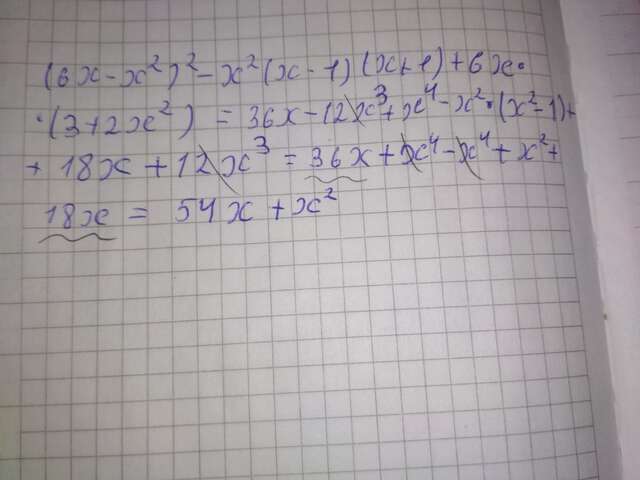 (6x-x²)²-x²(x-1)(x+1)+6x·
·(3+2x²) = 36x-12x³+x⁴-x²·(x²-1)+
+ 18x+12x³ = 36x+x⁴-x⁴+x²+
18x = 54x+x²